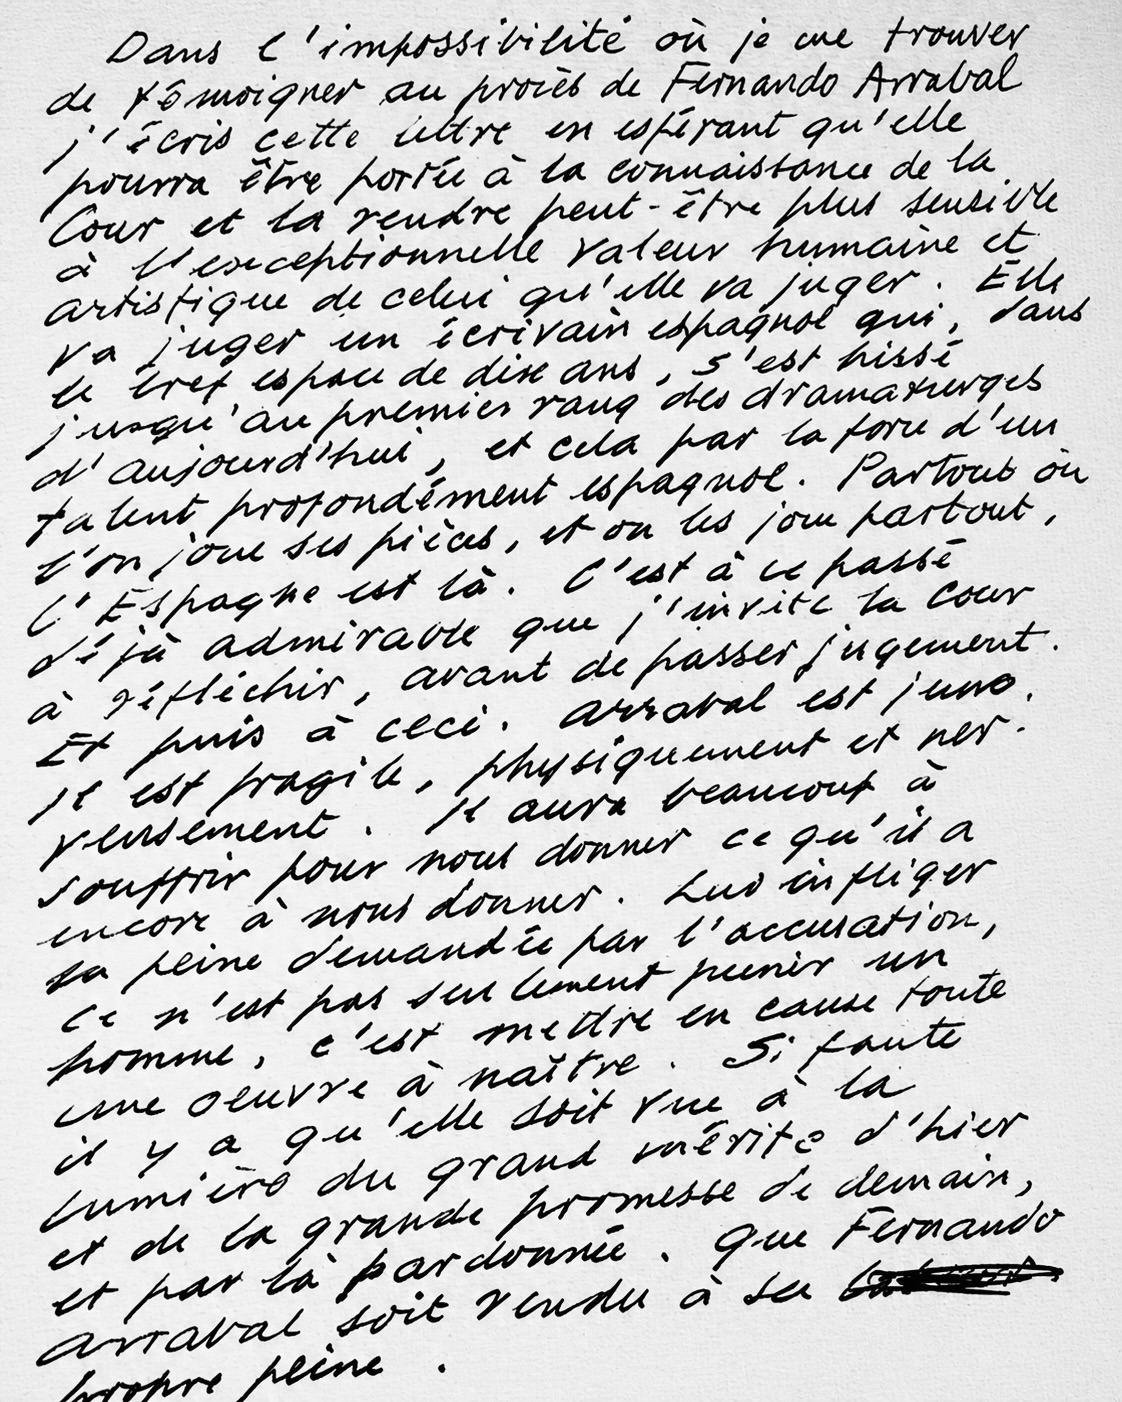 Dans l'impossibilité où je me trouver
de témoigner au procès de Fernando Arrabal
j'écris cette lettre en espérant qu'elle
pourra être portée à la connaissance de la
Cour et la rendre peut-être plus sensible
à l'exceptionnelle valeur humaine et
artistique de celui qu'elle va juger. Elle
va juger un écrivain espagnol qui, dans
le bref espace de dix ans, s'est hissé
jusqu'au premier rang des dramaturges
d'aujourd'hui, et cela par la force d'un
talent profondément espagnol. Partout où
l'on joue ses pièces, et on les joue partout,
l'Espagne est là. C'est à ce passé
déjà admirable que j'invite la Cour
à réfléchir, avant de passer jugement.
Et puis à ceci. Arrabal est jeune.
Il est fragile, physiquement et ner-
veusement. Il aura beaucoup à
souffrir pour nous donner ce qu'il a
encore à nous donner. Lui infliger
la peine demandée par l'accusation,
ce n'est pas seulement punir un
homme, c'est mettre en cause toute
une oeuvre à naître. Si faute
il y a qu'elle soit vue à la
lumière du grand mérite d'hier
et de la grande promesse de demain,
et par là pardonnée. Que Fernando
Arrabal soit rendu à sa
propre peine.